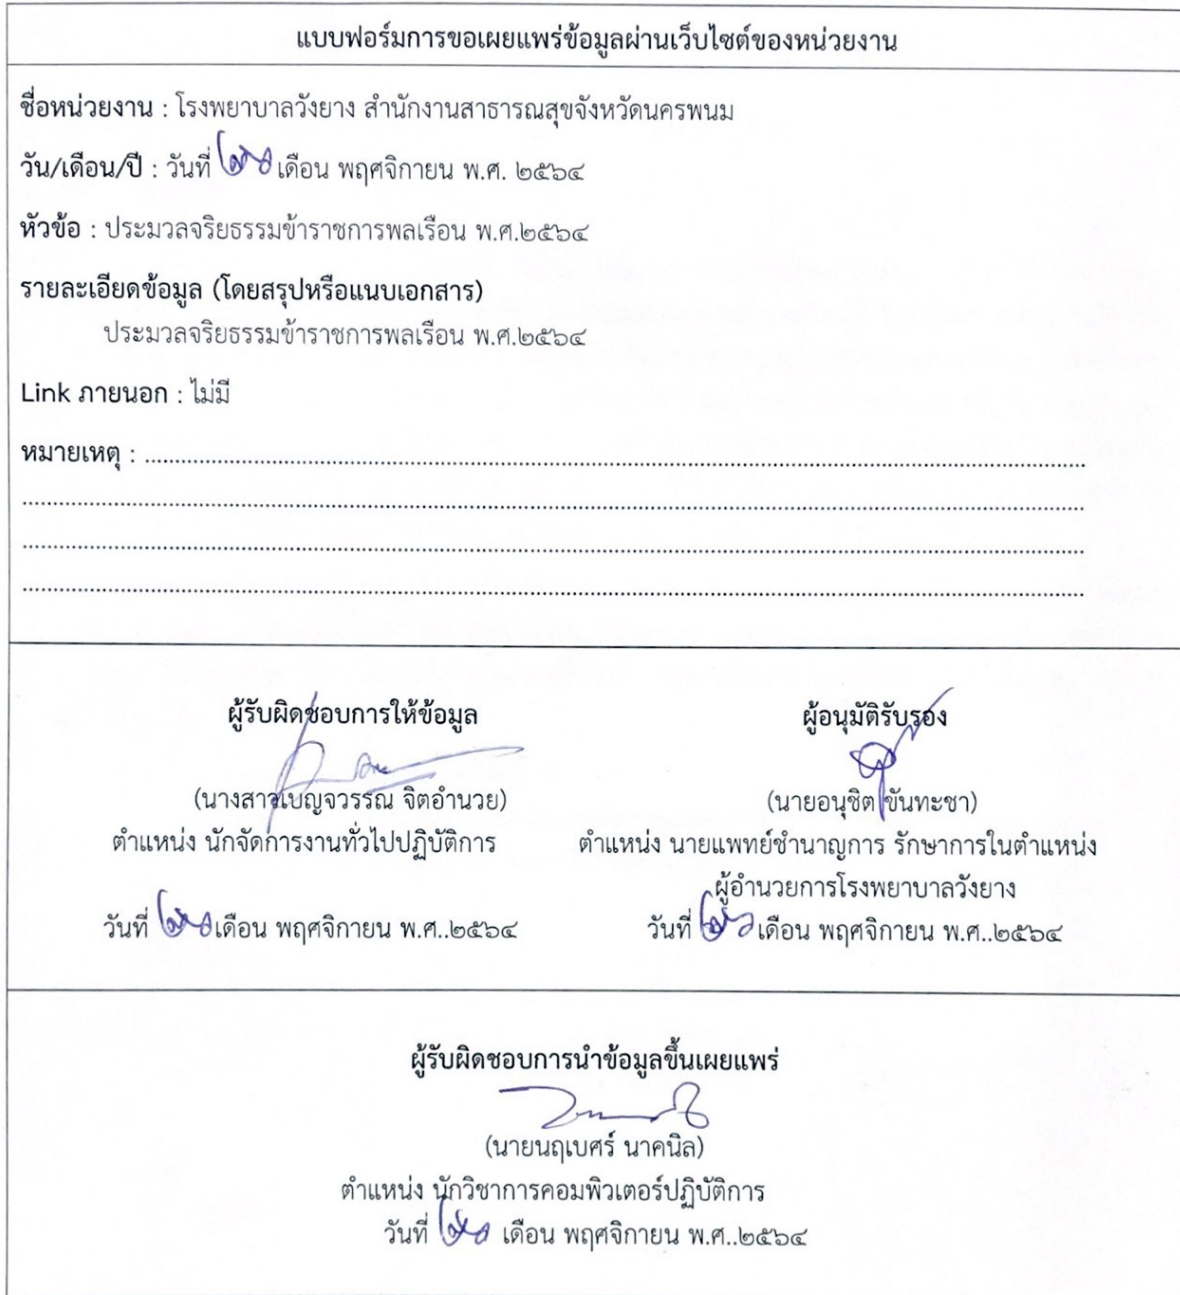 แบบฟอร์มการขอเผยแพร่ข้อมูลผ่านเว็บไซต์ของหน่วยงาน
ชื่อหน่วยงาน : โรงพยาบาลวังยาง สำนักงานสาธารณสุขจังหวัดนครพนม
วัน/เดือน/ปี : วันที่ เดือน พฤศจิกายน พ.ศ. ๒๕๖๔
หัวข้อ : ประมวลจริยธรรมข้าราชการพลเรือน พ.ศ.๒๕๖๔
รายละเอียดข้อมูล (โดยสรุปหรือแนบเอกสาร)
ประมวลจริยธรรมข้าราชการพลเรือน พ.ศ.๒๕๖๔
Link ภายนอก : ไม่มี
หมายเหตุ :
ผู้รับผิดชอบการให้ข้อมูล
(นางสาวเบญจวรรณ จิตอำนวย)
ตำแหน่ง นักจัดการงานทั่วไปปฏิบัติการ
วันที่ เดือน พฤศจิกายน พ.ศ..๒๕๖๔
ผู้อนุมัติรับรอง
(นายอนุชิต ขันทะชา)
ตำแหน่ง นายแพทย์ชำนาญการ รักษาการในตำแหน่ง
ผู้อำนวยการโรงพยาบาลวังยาง
วันที่ เดือน พฤศจิกายน พ.ศ..๒๕๖๔
ผู้รับผิดชอบการนำข้อมูลขึ้นเผยแพร่
(นายนฤเบศร์ นาคนิล)
ตำแหน่ง นักวิชาการคอมพิวเตอร์ปฏิบัติการ
วันที่ เดือน พฤศจิกายน พ.ศ..๒๕๖๔